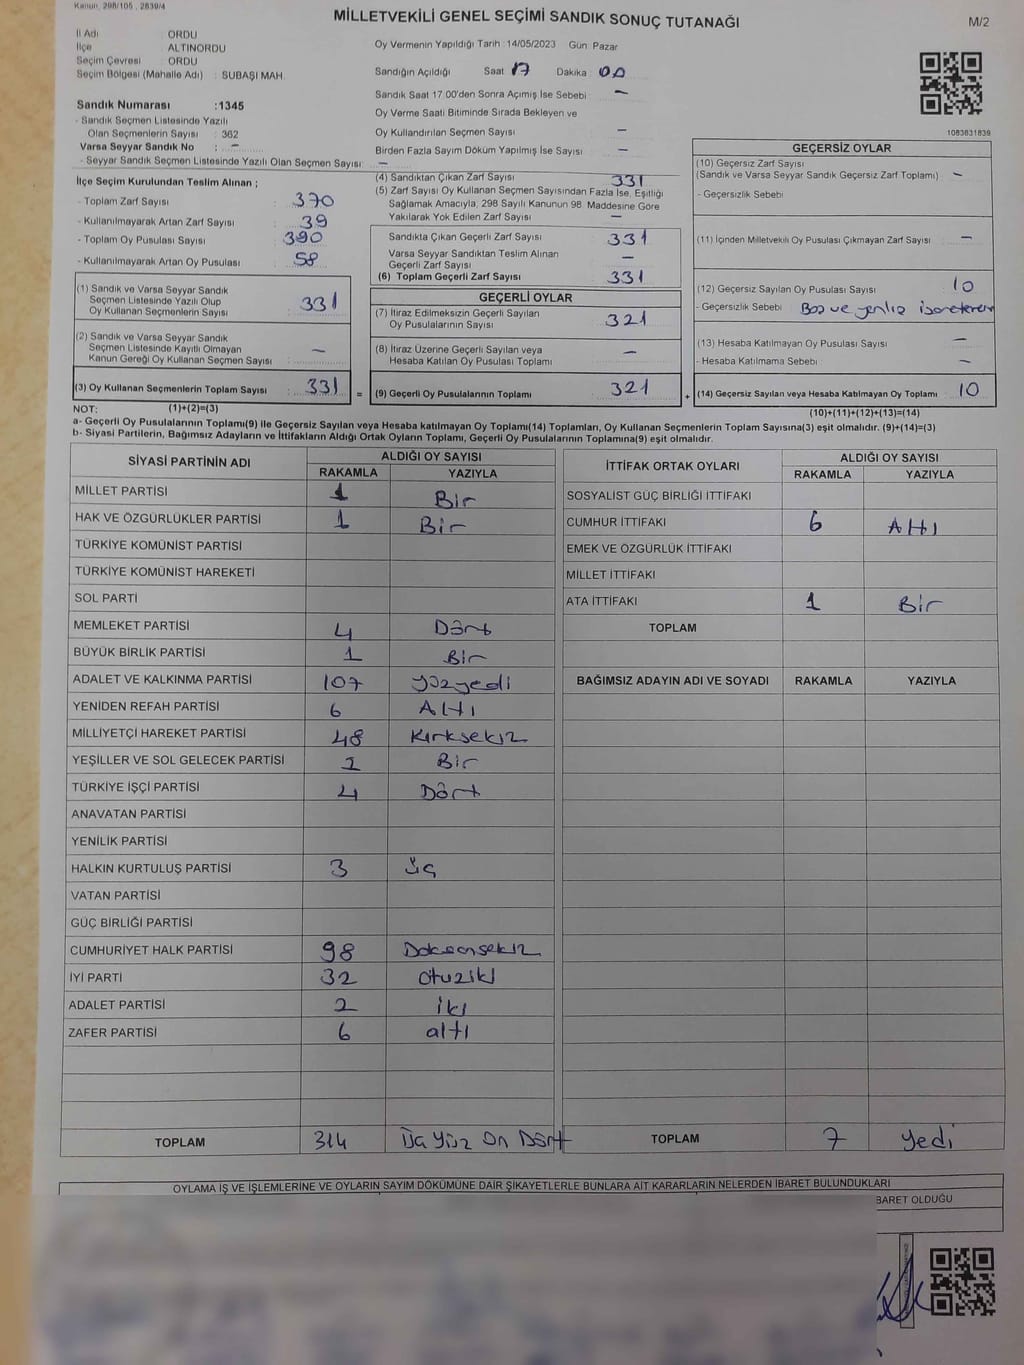 Kanun, 298/105 , 2839/4
MİLLETVEKİLİ GENEL SEÇİMİ SANDIK SONUÇ TUTANAĞI
M/2
İl Adı : ORDU
İlçe : ALTINORDU
Seçim Çevresi : ORDU
Seçim Bölgesi (Mahalle Adı) : SUBAŞI MAH.
Sandık Numarası :1345
- Sandık Seçmen Listesinde Yazılı
Olan Seçmenlerin Sayısı : 362
Varsa Seyyar Sandık No : -
- Seyyar Sandık Seçmen Listesinde Yazılı Olan Seçmen Sayısı: -
Oy Vermenin Yapıldığı Tarih :14/05/2023 Gün Pazar
Sandığın Açıldığı Saat 17 Dakika : 00
Sandık Saat 17:00'den Sonra Açımış İse Sebebi : -
Oy Verme Saati Bitiminde Sırada Bekleyen ve
Oy Kullandırılan Seçmen Sayısı : -
Birden Fazla Sayım Döküm Yapılmış İse Sayısı : -
1083831839
İlçe Seçim Kurulundan Teslim Alınan ;
- Toplam Zarf Sayısı : 370
- Kullanılmayarak Artan Zarf Sayısı : 39
- Toplam Oy Pusulası Sayısı : 390
- Kullanılmayarak Artan Oy Pusulası : 58
(1) Sandık ve Varsa Seyyar Sandık
Seçmen Listesinde Yazılı Olup
Oy Kullanan Seçmenlerin Sayısı : 331
(2) Sandık ve Varsa Seyyar Sandık
Seçmen Listesinde Kayıtlı Olmayan
Kanun Gereği Oy Kullanan Seçmen Sayısı : -
(3) Oy Kullanan Seçmenlerin Toplam Sayısı : 331 =
(4) Sandıktan Çıkan Zarf Sayısı : 331
(5) Zarf Sayısı Oy Kullanan Seçmen Sayısından Fazla İse, Eşitliği
Sağlamak Amacıyla, 298 Sayılı Kanunun 98. Maddesine Göre
Yakılarak Yok Edilen Zarf Sayısı : -
Sandıkta Çıkan Geçerli Zarf Sayısı : 331
Varsa Seyyar Sandıktan Teslim Alınan
Geçerli Zarf Sayısı : -
(6) Toplam Geçerli Zarf Sayısı : 331
GEÇERLİ OYLAR
(7) İtiraz Edilmeksizin Geçerli Sayılan
Oy Pusulalarının Sayısı : 321
(8) İtiraz Üzerine Geçerli Sayılan veya
Hesaba Katılan Oy Pusulası Toplamı : -
(9) Geçerli Oy Pusulalarının Toplamı : 321 +
GEÇERSİZ OYLAR
(10) Geçersiz Zarf Sayısı
(Sandık ve Varsa Seyyar Sandık Geçersiz Zarf Toplamı) : -
- Geçersizlik Sebebi
(11) İçinden Milletvekili Oy Pusulası Çıkmayan Zarf Sayısı : -
(12) Geçersiz Sayılan Oy Pusulası Sayısı : 10
- Geçersizlik Sebebi : Boş ve yanlış
(13) Hesaba Katılmayan Oy Pusulası Sayısı : -
- Hesaba Katılmama Sebebi : -
(14) Geçersiz Sayılan veya Hesaba Katılmayan Oy Toplamı : 10
NOT: (1)+(2)=(3)
(10)+(11)+(12)+(13)=(14)
a- Geçerli Oy Pusulalarının Toplamı(9) ile Geçersiz Sayılan veya Hesaba katılmayan Oy Toplamı(14) Toplamları, Oy Kullanan Seçmenlerin Toplam Sayısına(3) eşit olmalıdır. (9)+(14)=(3)
b- Siyasi Partilerin, Bağımsız Adayların ve İttifakların Aldığı Ortak Oyların Toplamı, Geçerli Oy Pusulalarının Toplamına(9) eşit olmalıdır.
SİYASİ PARTİNİN ADI ALDIĞI OY SAYISI
RAKAMLA YAZIYLA
MİLLET PARTİSİ 1 Bir
HAK VE ÖZGÜRLÜKLER PARTİSİ 1 Bir
TÜRKİYE KOMÜNİST PARTİSİ
TÜRKİYE KOMÜNİST HAREKETİ
SOL PARTİ
MEMLEKET PARTİSİ 4 Dört
BÜYÜK BİRLİK PARTİSİ 1 Bir
ADALET VE KALKINMA PARTİSİ 107 yüzyedi
YENİDEN REFAH PARTİSİ 6 Altı
MİLLİYETÇİ HAREKET PARTİSİ 48 Kırksekiz
YEŞİLLER VE SOL GELECEK PARTİSİ 1 Bir
TÜRKİYE İŞÇİ PARTİSİ 4 Dört
ANAVATAN PARTİSİ
YENİLİK PARTİSİ
HALKIN KURTULUŞ PARTİSİ 3 üç
VATAN PARTİSİ
GÜÇ BİRLİĞİ PARTİSİ
CUMHURİYET HALK PARTİSİ 98 Doksansekiz
İYİ PARTİ 32 otuziki
ADALET PARTİSİ 2 iki
ZAFER PARTİSİ 6 altı
TOPLAM 314 Üç Yüz On Dört
İTTİFAK ORTAK OYLARI ALDIĞI OY SAYISI
RAKAMLA YAZIYLA
SOSYALİST GÜÇ BİRLİĞİ İTTİFAKI
CUMHUR İTTİFAKI 6 Altı
EMEK VE ÖZGÜRLÜK İTTİFAKI
MİLLET İTTİFAKI
ATA İTTİFAKI 1 Bir
TOPLAM
BAĞIMSIZ ADAYIN ADI VE SOYADI RAKAMLA YAZIYLA
TOPLAM 7 yedi
OYLAMA İŞ VE İŞLEMLERİNE VE OYLARIN SAYIM DÖKÜMÜNE DAİR ŞİKAYETLERLE BUNLARA AİT KARARLARIN NELERDEN İBARET BULUNDUKLARI
BARET OLDUĞU